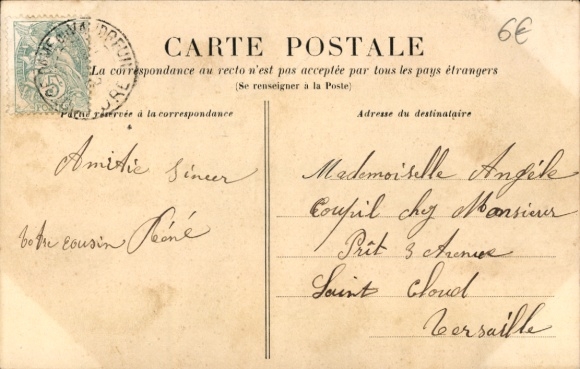 6€
CARTE POSTALE
La correspondance au recto n'est pas acceptée par tous les pays étrangers
(Se renseigner à la Poste)
Partie réservée à la correspondance
Adresse du destinataire
Amitié Sincer
Votre cousin Réné
Mademoiselle Angèle
Coupil chez Monsieur
Prêt 3 Avenue
Saint Cloud
Versaille